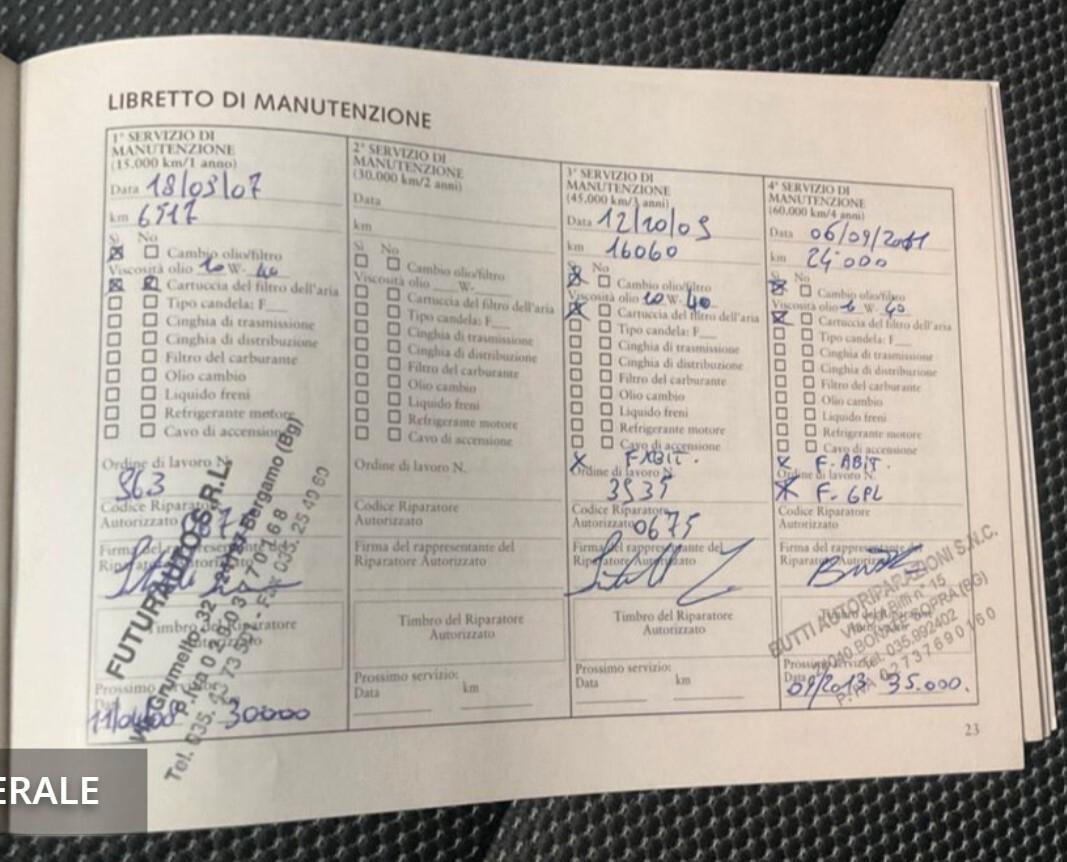 LIBRETTO DI MANUTENZIONE
1° SERVIZIO DI
MANUTENZIONE
(15.000 km/1 anno)
Data 18/03/07
km 6517
Sì No
Cambio olio/filtro
Viscosità olio 10 W- 40
Cartuccia del filtro dell'aria
Tipo candela: F___
Cinghia di trasmissione
Cinghia di distribuzione
Filtro del carburante
Olio cambio
Liquido freni
Refrigerante motore
Cavo di accensione
Ordine di lavoro N.
963
Codice Riparatore
Autorizzato 0675
Firma del rappresentante del
Riparatore Autorizzato
Timbro del Riparatore
Autorizzato
FUTURAUTO S.R.L.
Via Grumello, 32 - 24127 Bergamo (Bg)
P. Iva 0 2 9 0 3 7 7 0 1 6 8
Tel. 035. Fax 035.25 40 60
Prossimo servizio:
Data km
11/04/08 30000
2° SERVIZIO DI
MANUTENZIONE
(30.000 km/2 anni)
Data
km
Sì No
Cambio olio/filtro
Viscosità olio ___W-___
Cartuccia del filtro dell'aria
Tipo candela: F___
Cinghia di trasmissione
Cinghia di distribuzione
Filtro del carburante
Olio cambio
Liquido freni
Refrigerante motore
Cavo di accensione
Ordine di lavoro N.
Codice Riparatore
Autorizzato
Firma del rappresentante del
Riparatore Autorizzato
Timbro del Riparatore
Autorizzato
Prossimo servizio:
Data km
3° SERVIZIO DI
MANUTENZIONE
(45.000 km/3 anni)
Data 12/10/09
km 16060
Sì No
Cambio olio/filtro
Viscosità olio 10 W- 40
Cartuccia del filtro dell'aria
Tipo candela: F___
Cinghia di trasmissione
Cinghia di distribuzione
Filtro del carburante
Olio cambio
Liquido freni
Refrigerante motore
Cavo di accensione
X F.ABIT.
Ordine di lavoro N.
3535
Codice Riparatore
Autorizzato 0675
Firma del rappresentante del
Riparatore Autorizzato
Timbro del Riparatore
Autorizzato
Prossimo servizio:
Data km
4° SERVIZIO DI
MANUTENZIONE
(60.000 km/4 anni)
Data 06/09/2011
km 24.000
Sì No
Cambio olio/filtro
Viscosità olio 10 W- 40
Cartuccia del filtro dell'aria
Tipo candela: F___
Cinghia di trasmissione
Cinghia di distribuzione
Filtro del carburante
Olio cambio
Liquido freni
Refrigerante motore
Cavo di accensione
X F. ABIT.
Ordine di lavoro N.
X F. GPL
Codice Riparatore
Autorizzato
Firma del rappresentante del
Riparatore Autorizzato
BUTTI AUTORIPARAZIONI S.N.C.
Via A. Biffi n° 15
24040 BONATE SOPRA (BG)
Tel. 035.992402
P. IVA 0 2 7 3 7 6 9 0 1 6 0
Prossimo servizio:
Data
09/2013 35.000.
23
ERALE